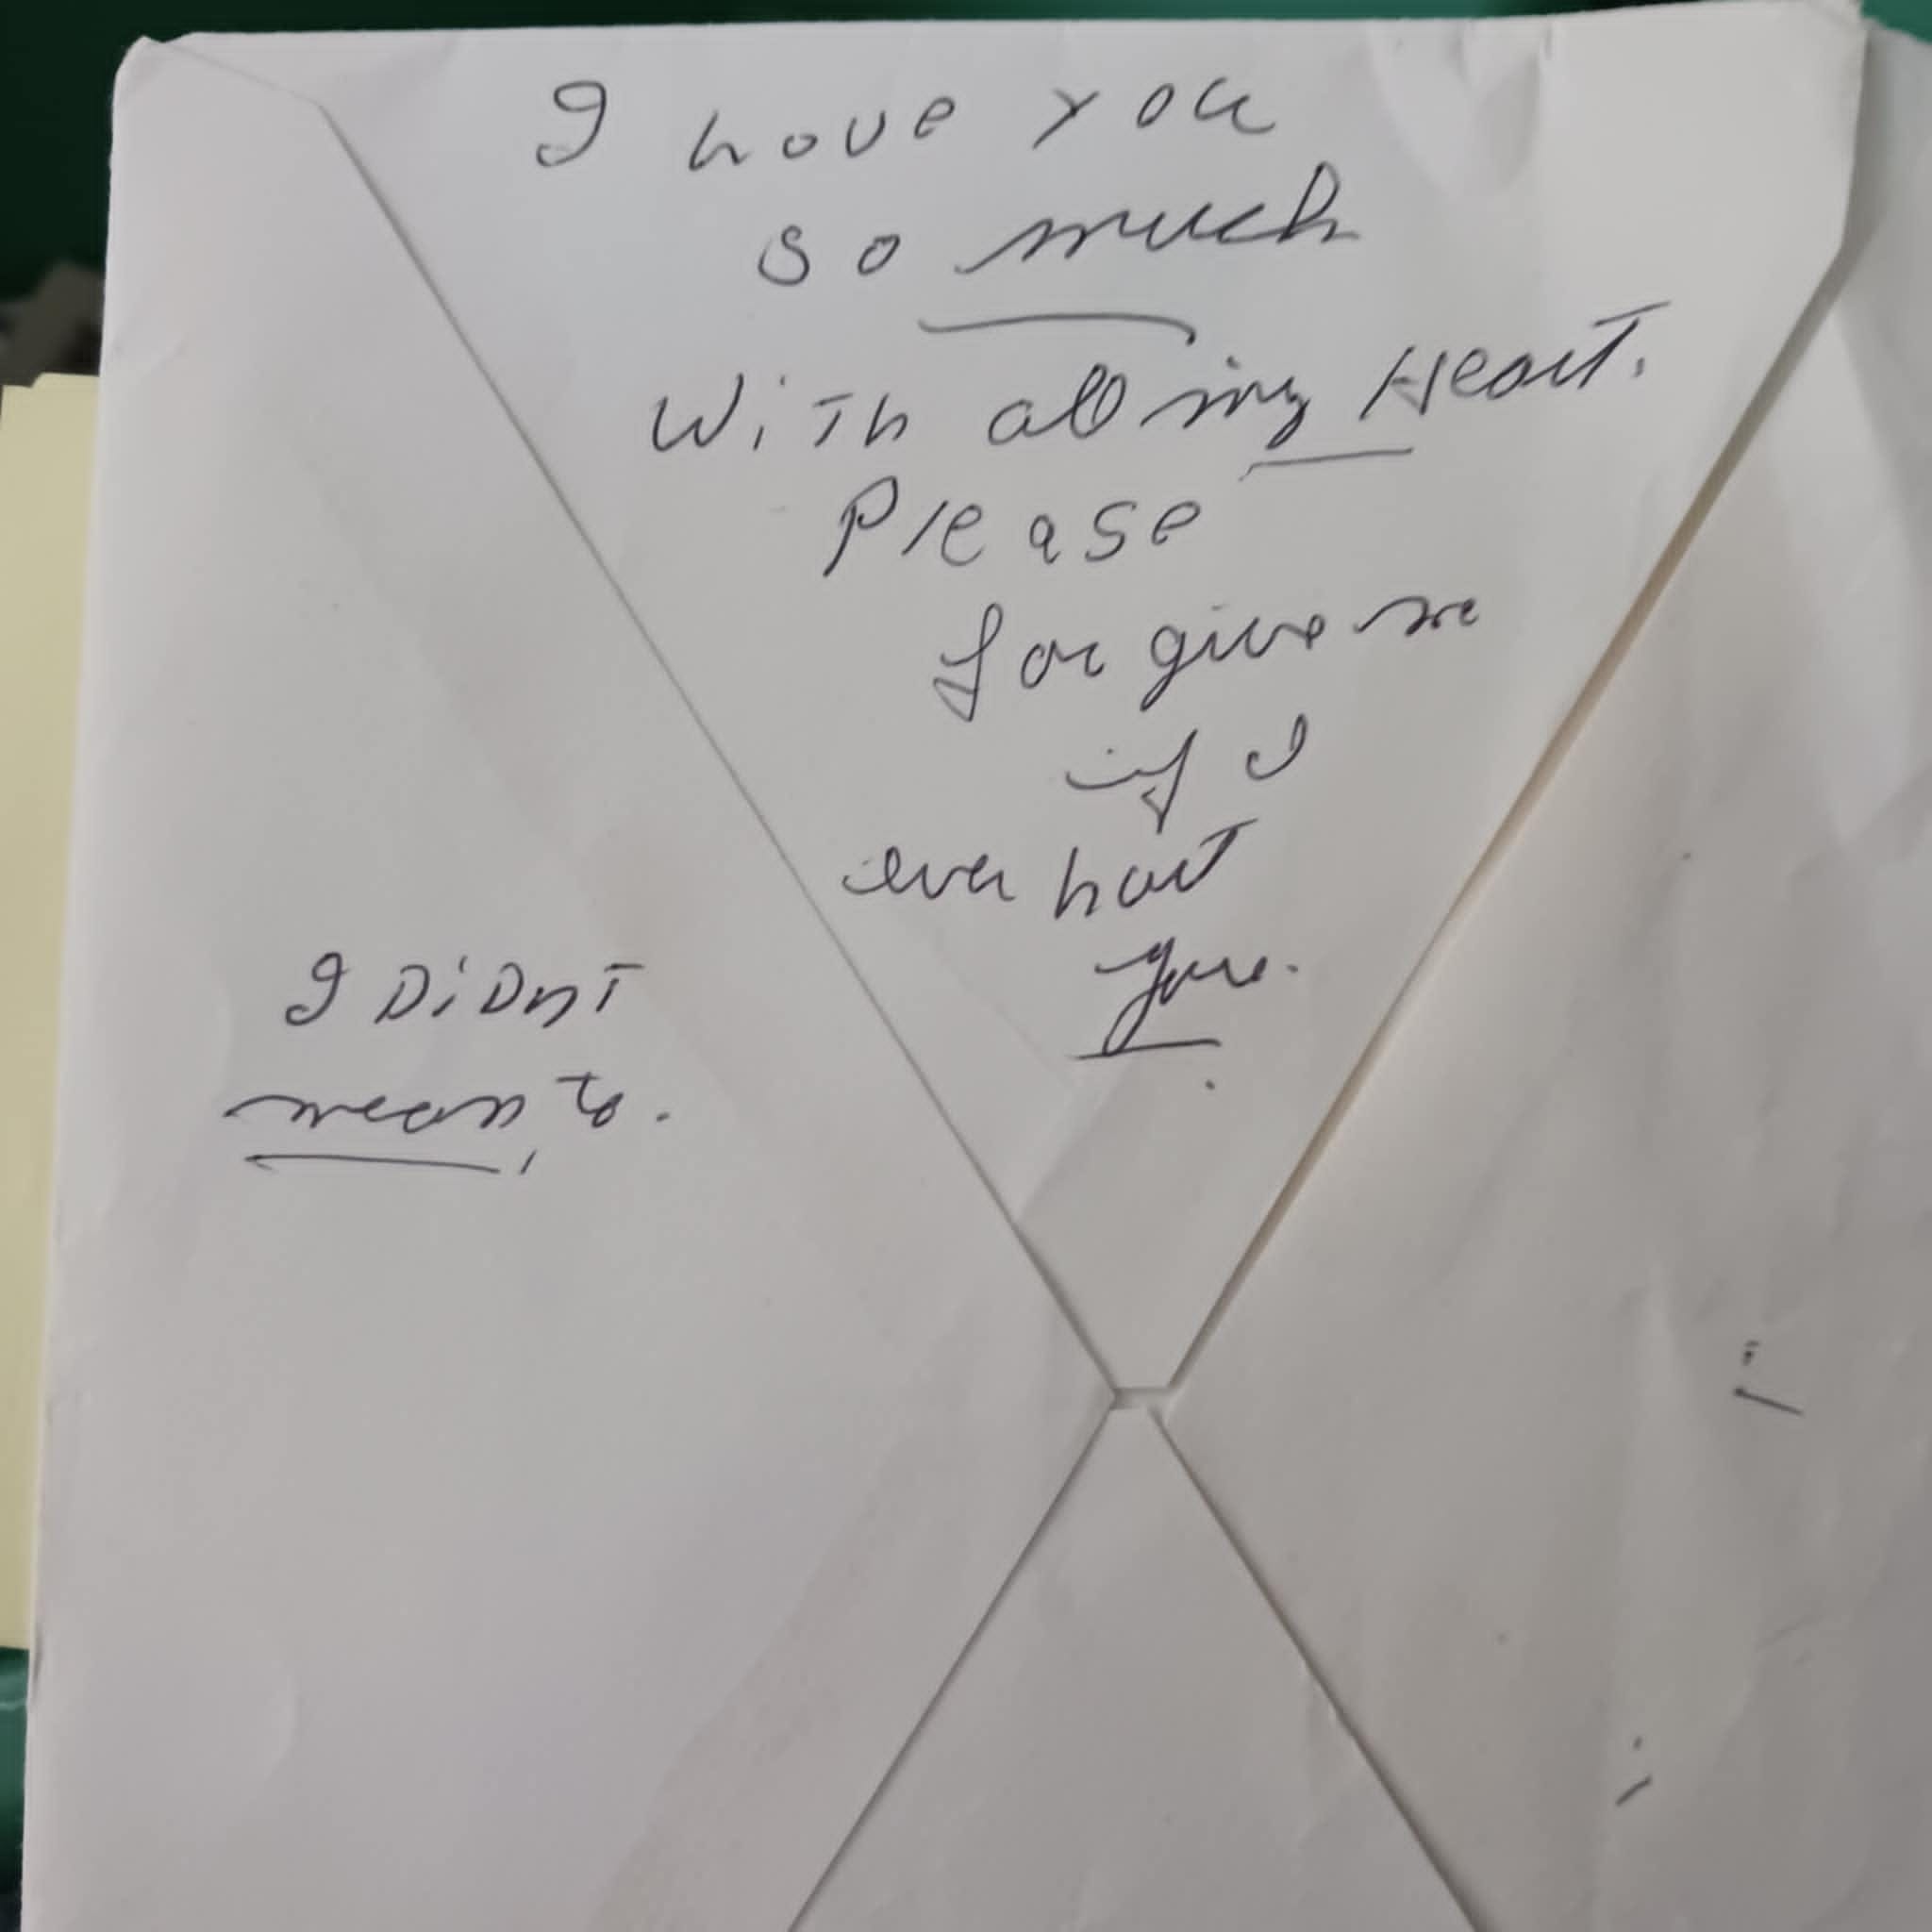 I Love you
so much
With all my Heart.
Please
forgive me
if I
ever hurt
you.
I DiDnT
mean to.